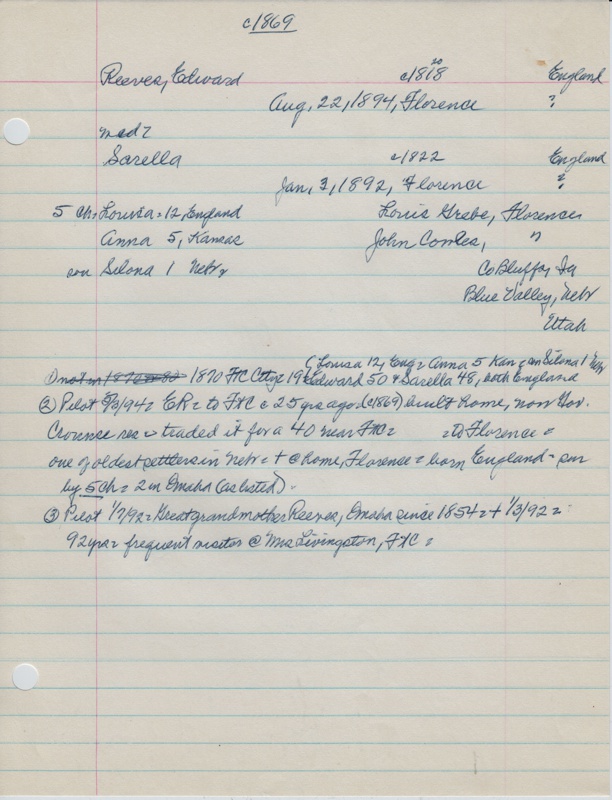 c1869
Reeves, Edward c1818 20 England
Aug, 22, 1894, Florence ?
md ?
Sarella c1822 England
Jan, 3, 1892, Florence ?
5 ch = Louisa = 12, England Louis Grebe, Florence
Anna 5, Kansas John Combes, "
son Silona 1 Nebr, Co Bluffs, Ia
Blue Valley, Nebr
Utah
(Louisa 12, Eng = Anna 5 Kan = son Silona 1 Nebr
① not in 1870 or 80 1870 FtC Cttge 19 Edward 50 & Sarella 48, both England
② Pilot 94 = ER = to FtC c 25 yrs ago (c1869) built home, now Gov.
Crounse res = traded it for a 40 near FtC = = to Florence =
one of oldest settlers in Nebr = + @ home, Florence = born England = sur
by 5 ch = 2 in Omaha (as listed).
③ Pilot 1/7/92 = Great grandmother Reeves, Omaha since 1854 = + 1/3/92 =
92 yrs = frequent visitor @ Mrs Livingston, FtC =